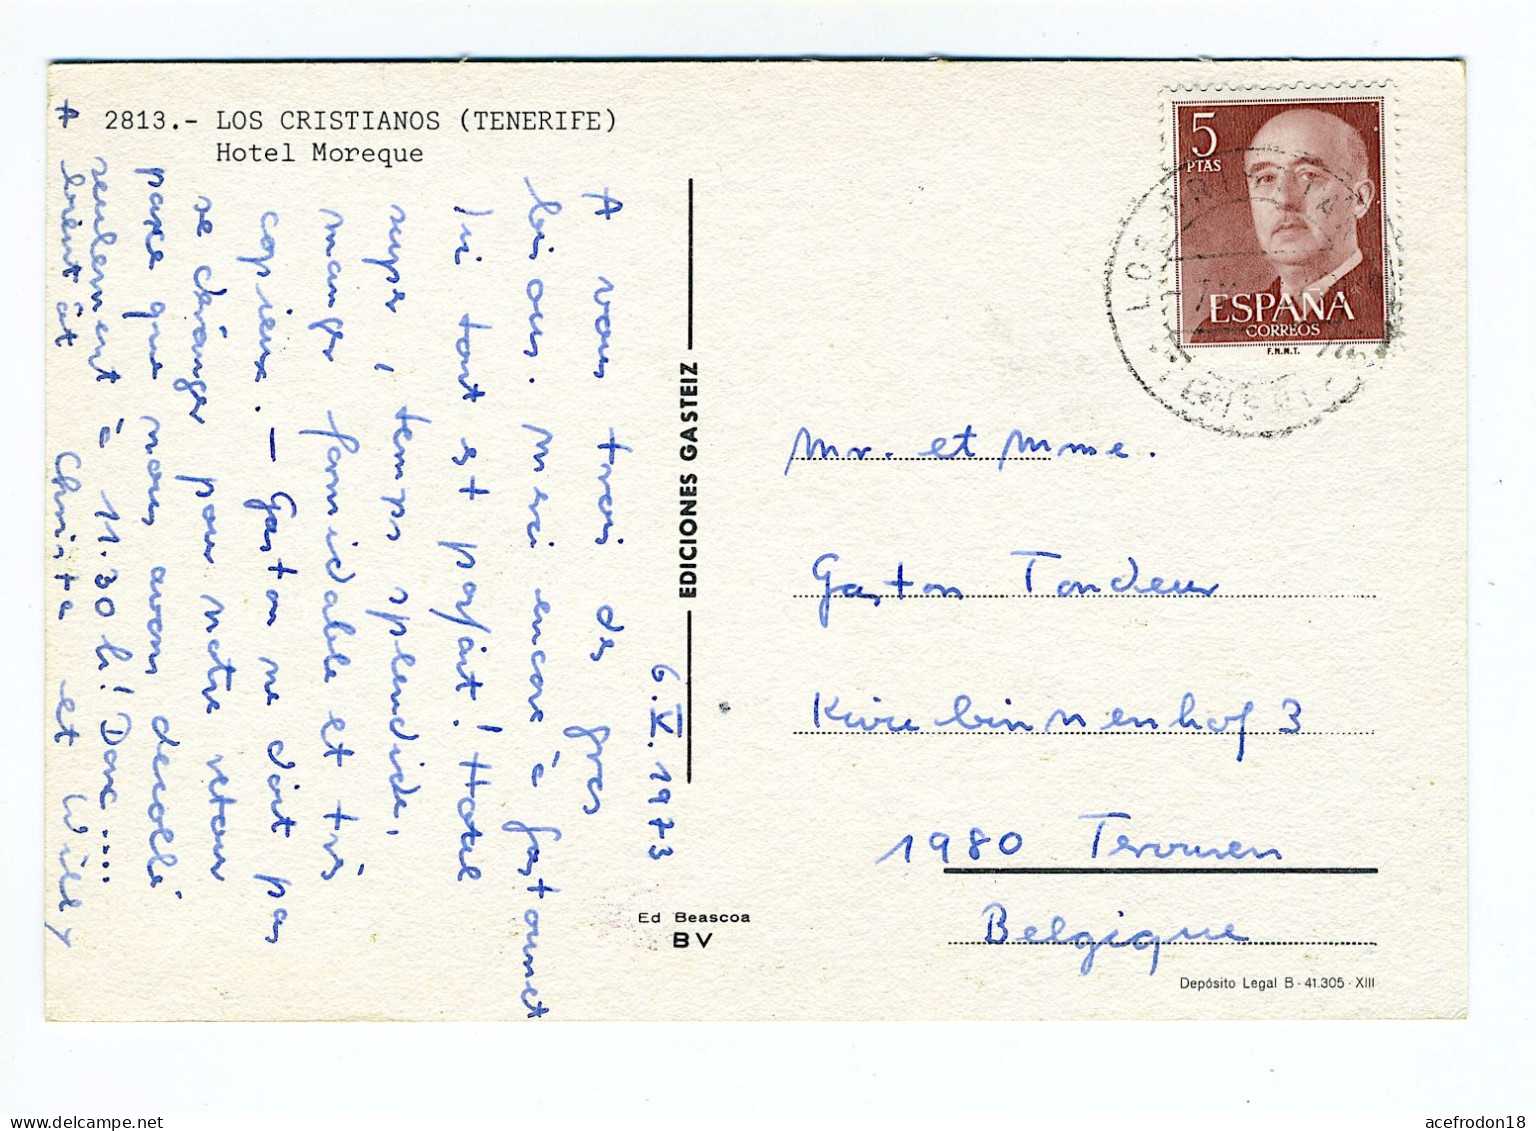 2813.- LOS CRISTIANOS (TENERIFE)
Hotel Moreque
6.X.1973
A vous trois des gros
bisous. Merci encore à Gastounet
Ici tout est parfait! Hotel
super, temps splendide,
manger formidable et très
copieux. — Gaston ne doit pas
se déranger pour notre retour
parce que nous avons decollé
seulement à 11.30 h! Donc....
A bientôt Christa et Willy
EDICIONES GASTEIZ
Ed Beascoa
BV
5
PTAS
ESPAÑA
CORREOS
F.N.M.T.
LOS
Mr. et Mme.
Gaston Tondeur
binnenhof 3
1980 Tervuren
Belgique
Depósito Legal B - 41.305 - XIII
acefrodon18